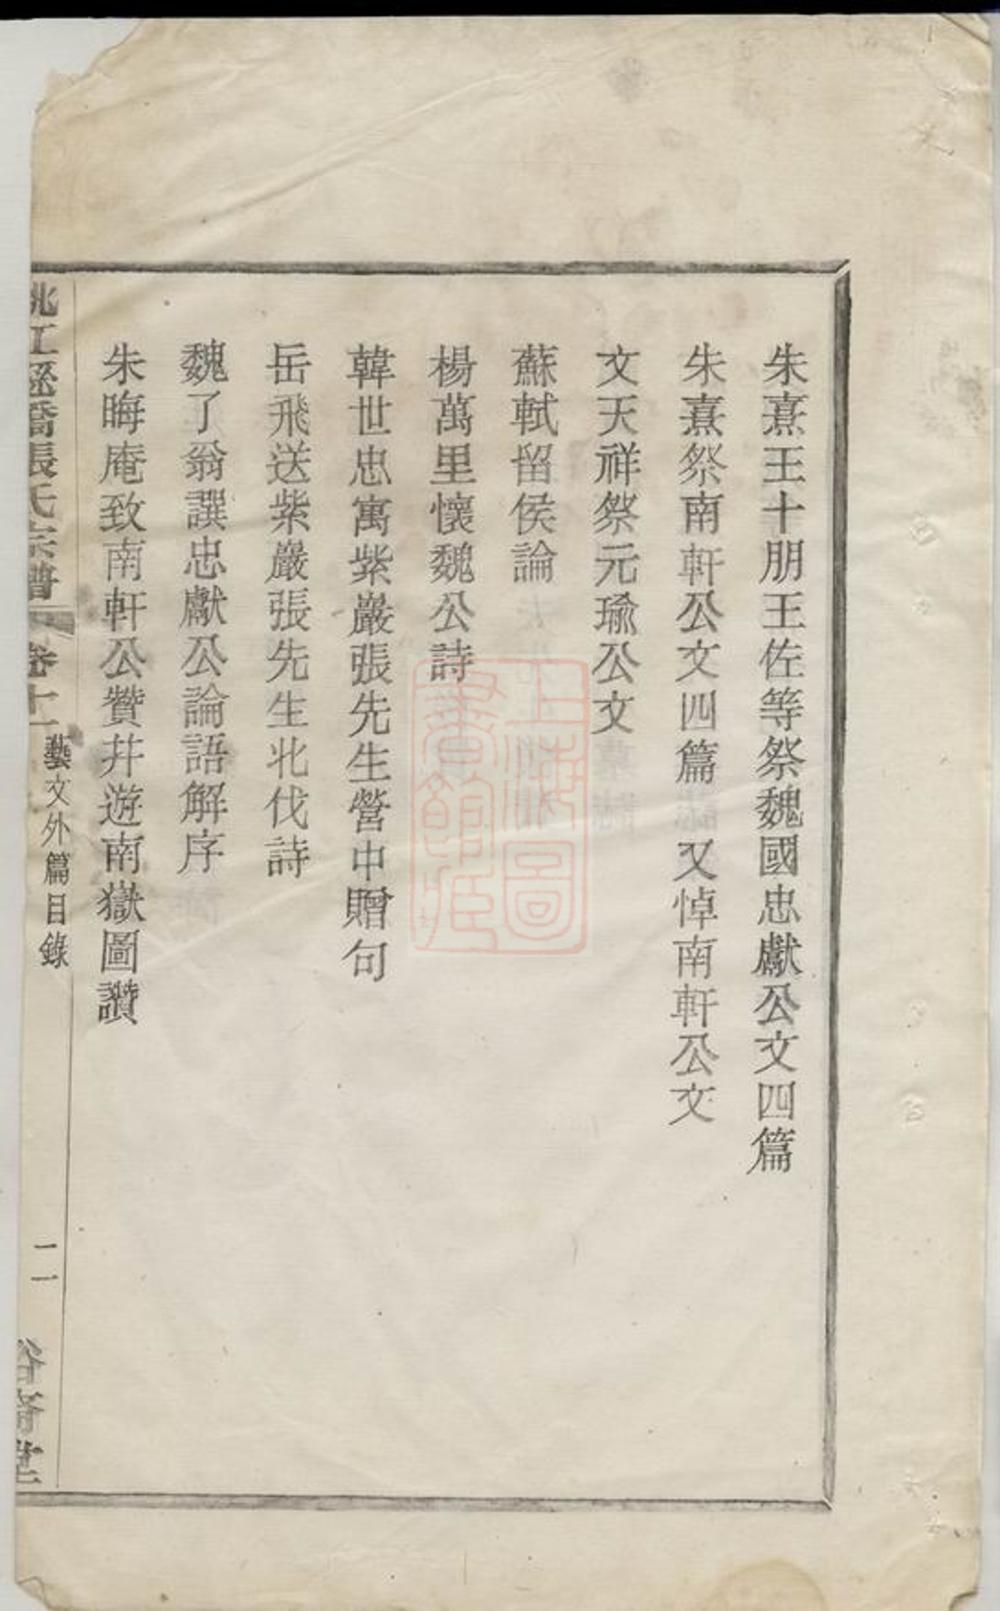 朱熹王十朋王佐等祭魏國忠獻公文四篇
朱熹祭南軒公文四篇 又悼南軒公文
文天祥祭元瑜公文
蘇軾留侯論
楊萬里懷魏公詩
韓世忠寓紫巖張先生營中贈句
岳飛送紫巖張先生北伐詩
魏了翁譔忠獻公論語解序
朱晦庵致南軒公贊并遊南嶽圖讚
姚江 橋張氏宗譜 卷十一 藝文外篇目錄 二 堂
上海圖書館藏